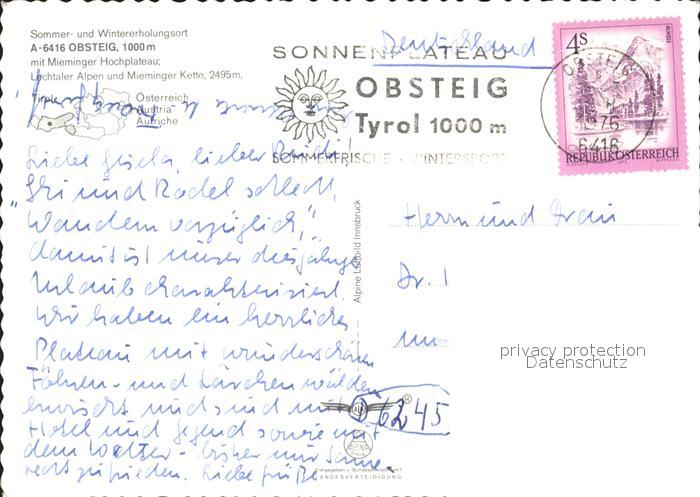 Sommer- und Wintererholungsort
A-6416 OBSTEIG, 1000 m
mit Mieminger Hochplateau;
Lechtaler Alpen und Mieminger Kette, 2495m,
Tirol
Österreich
Austria
Autriche
Deutschland
SONNENPLATEAU
OBSTEIG
Tyrol 1000 m
SOMMERFRISCHE · WINTERSPORT
4S
ALMSEE
REPUBLIK ÖSTERREICH
OBSTEIG
1976
6416
Liebe Gisela, lieber
"Ski und Rodel schlecht,
Wandern vorzüglich",
damit ist unser diesjähriger
Urlaub charakterisiert.
Wir haben ein herrliches
Plateau mit wunderschönen
Föhren- und Lärchenwäldern
erwischt und sind mit
Hotel und Gegend sowie mit
dem Wetter - bisher nur Sonne -
recht zufrieden. Liebe Grüße
Alpine Luftbild Innsbruck
Herrn und Frau
Dr.
6245
privacy protection
Datenschutz